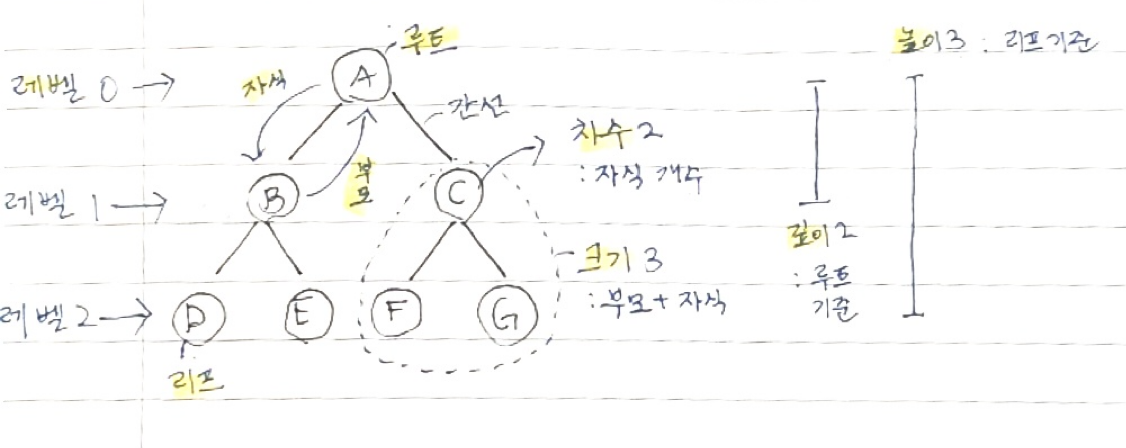 루트
높이 3 : 리프 기준
레벨 0 →
자식
A
간선
차수 2
: 자식 개수
레벨 1 →
B
부모
C
깊이 2
: 루트
기준
크기 3
: 부모 + 자식
레벨 2 →
D
E
F
G
리프